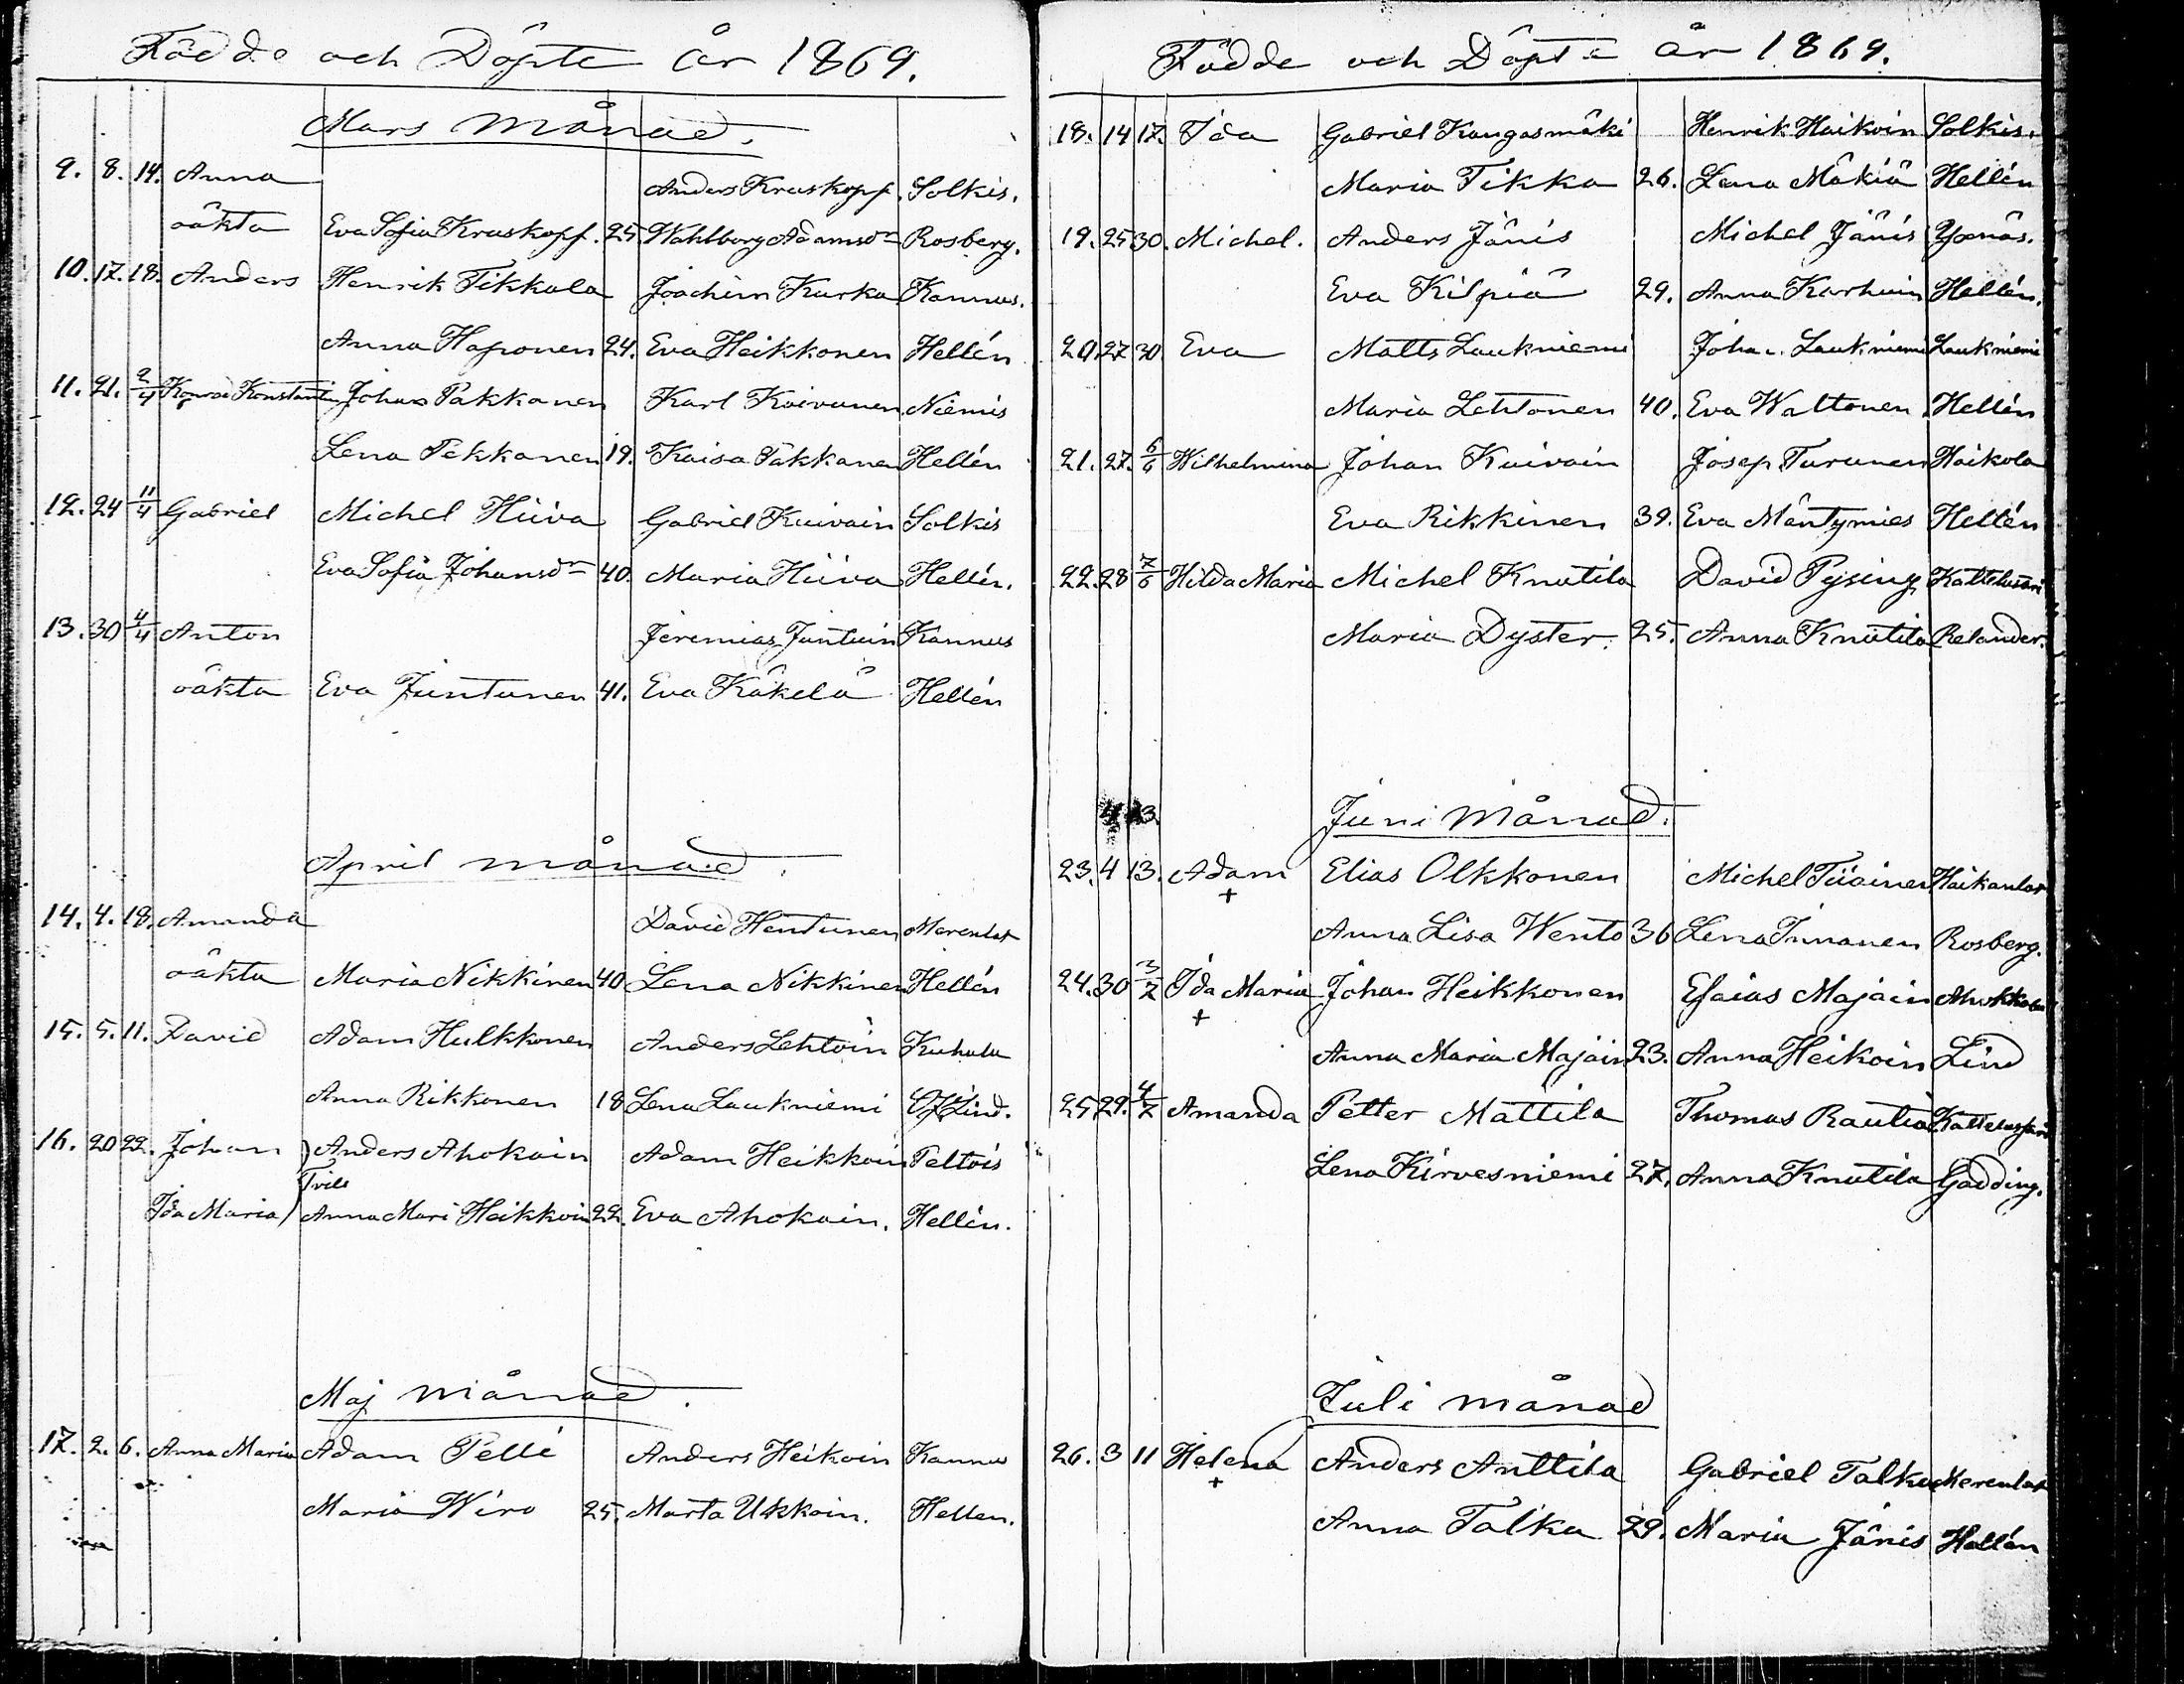 Födde och Döpte år 1869.
Mars månad.
9. 8. 14. Anna Anders Kruskopf. Solkis.
oäkta Eva Sofia Kruskopf. 25. Wahlborg Adamsdr Rosberg.
10. 17. 18. Anders Henrik Tikkala Joachim Kurka Kannus.
Anna Haponen 24. Eva Heikkonen Hellén
11. 21. 2/4 Konrad Konstantin Johan Pakkanen Karl Koivunen Niemis
Lena Pekkanen 19. Kaisa Pakkanen Hellén
12. 24 11/4 Gabriel Michel Hiiva Gabriel Kuivain Solkis
Eva Sofia Johansdr 40. Maria Hiiva Hellén.
13. 30 4/4 Anton Jeremias Juntuin Kannus
oäkta Eva Juntunen 41. Eva Käkelä Hellén
April månad.
14. 4. 18. Amanda David Hentunen Merenlat
oäkta Maria Nikkinen 40 Lena Nikkinen Hellén
15. 5. 11. David Adam Hulkkonen Anders Lehtoin Kuhala
Anna Rikkonen 18 Lena Laukniemi Lind.
16. 20 22. Johan Anders Ahokain Adam Heikkoin Peltois
Tvill
Ida Maria Anna Mari Heikkoin 22. Eva Ahokain. Hellén.
Maj månad.
17. 2. 6. Anna Maria Adam Pelli Anders Heikoin Kannus
Maria Wiro 25. Marta Ukkoin. Hellen.
Födde och Döpte år 1869.
18. 14 17. Ida Gabriel Kangasmäki Henrik Haikoin Solkis.
Maria Tikka 26. Lena Mäkiä Hellén
19. 25 30. Michel. Anders Jänis Michel Jänis
Eva Kilpiä 29. Anna Karhuin Hellén.
20. 27 30. Eva Matts Laukniemi Johan. Laukniemi Laukniemi
Maria Lehtonen 40. Eva Waltonen. Hellén
21. 27. 6/6 Wilhelmina Johan Kuivain Josep Turunen Haikola
Eva Rikkinen 39. Eva Mäntymies Hellén
22. 28 7/6 Hilda Maria Michel Knutila David Pysing Kattelusari
Maria Dyster. 25. Anna Knutila Relander.
4 13.
Juni månad.
23. 4 13. Adam Elias Olkkonen Michel Tiiainen Haikanlat
+
Anna Lisa Wento 36 Lena Innanen Rosberg.
24. 30 3/7 Ida Maria Johan Heikkonen Esaias Majain
+
Anna Maria Majain 23. Anna Heikoin Lind
25. 29. 4/7 Amanda Petter Mattila Thomas Rautia Kattelusari
Lena Kirvesniemi 27. Anna Knutila Gadding.
Juli månad
26. 3 11 Helena Anders Anttila Gabriel Talka Merenlat
+
Anna Talka 29. Maria Jänis Hellén